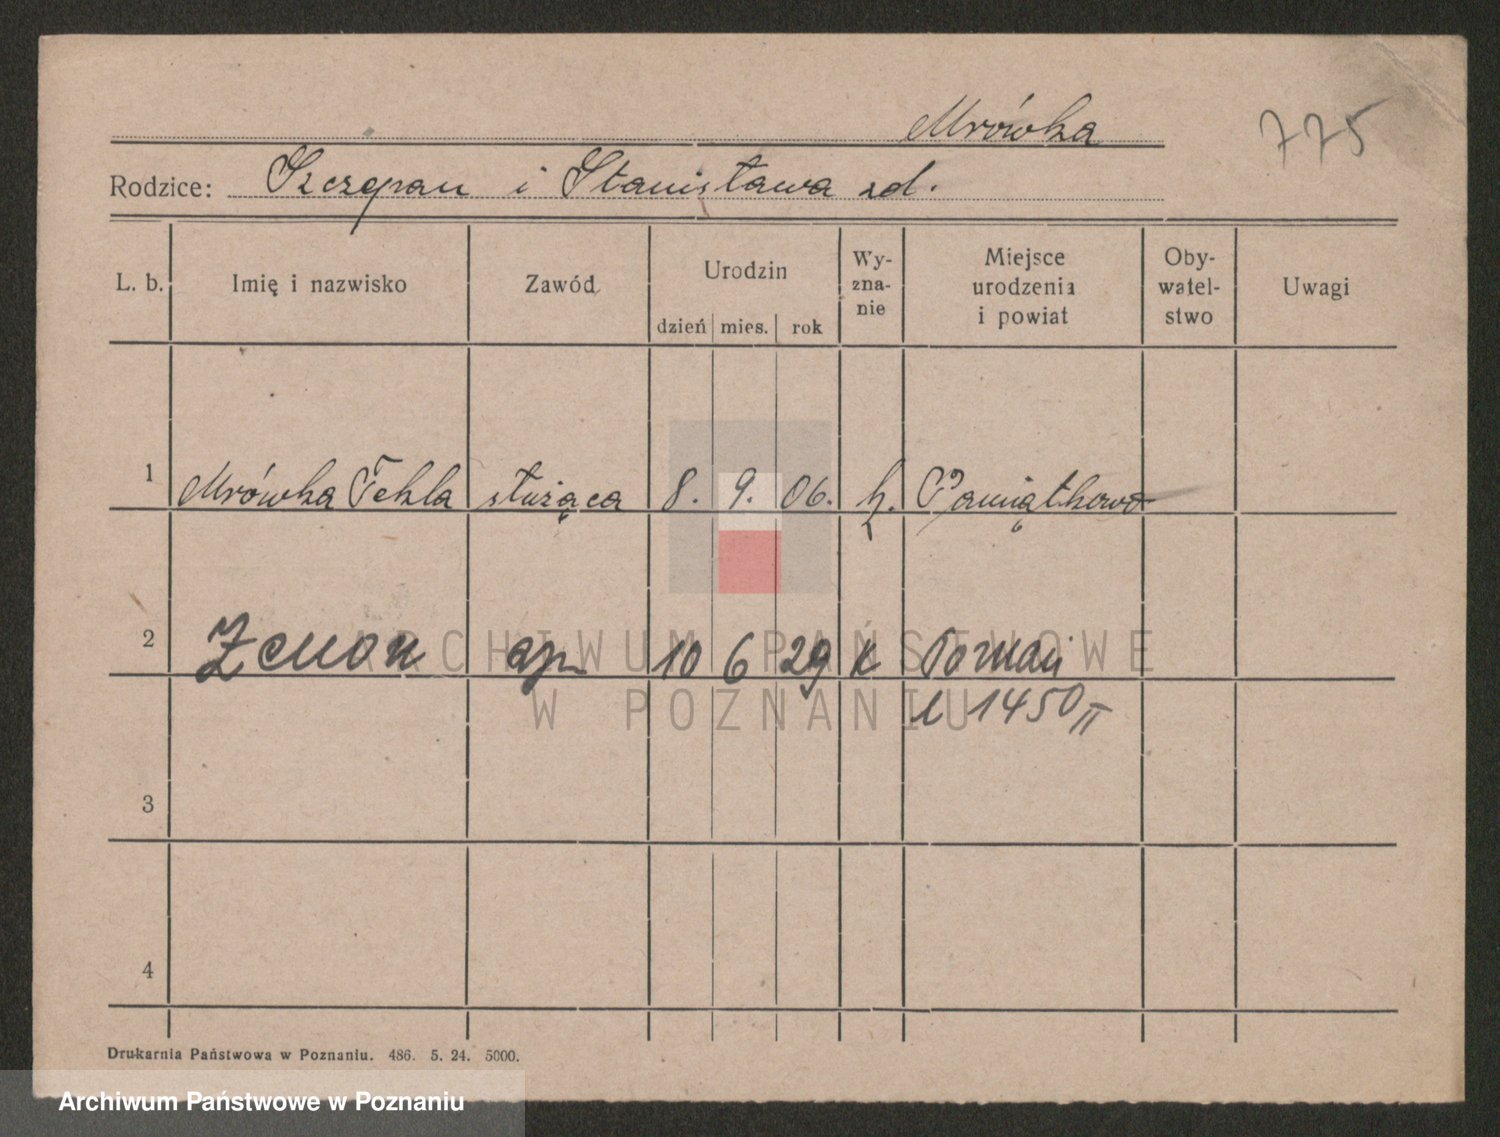 Mrówka 775
Rodzice: Szczepan i Stanisława zd.
L. b. Imię i nazwisko Zawód Urodzin dzień mies. rok Wy-zna-nie Miejsce urodzenia i powiat Oby-watel-stwo Uwagi
1 Mrówka Tekla służąca 8. 9. 06. k. Pamiątkowo
2 Zenon syn 10 6 29 k Poznań
l 1450 II
3
4
Drukarnia Państwowa w Poznaniu. 486. 5. 24. 5000.
ARCHIWUM PAŃSTWOWE
W POZNANIU
Archiwum Państwowe w Poznaniu